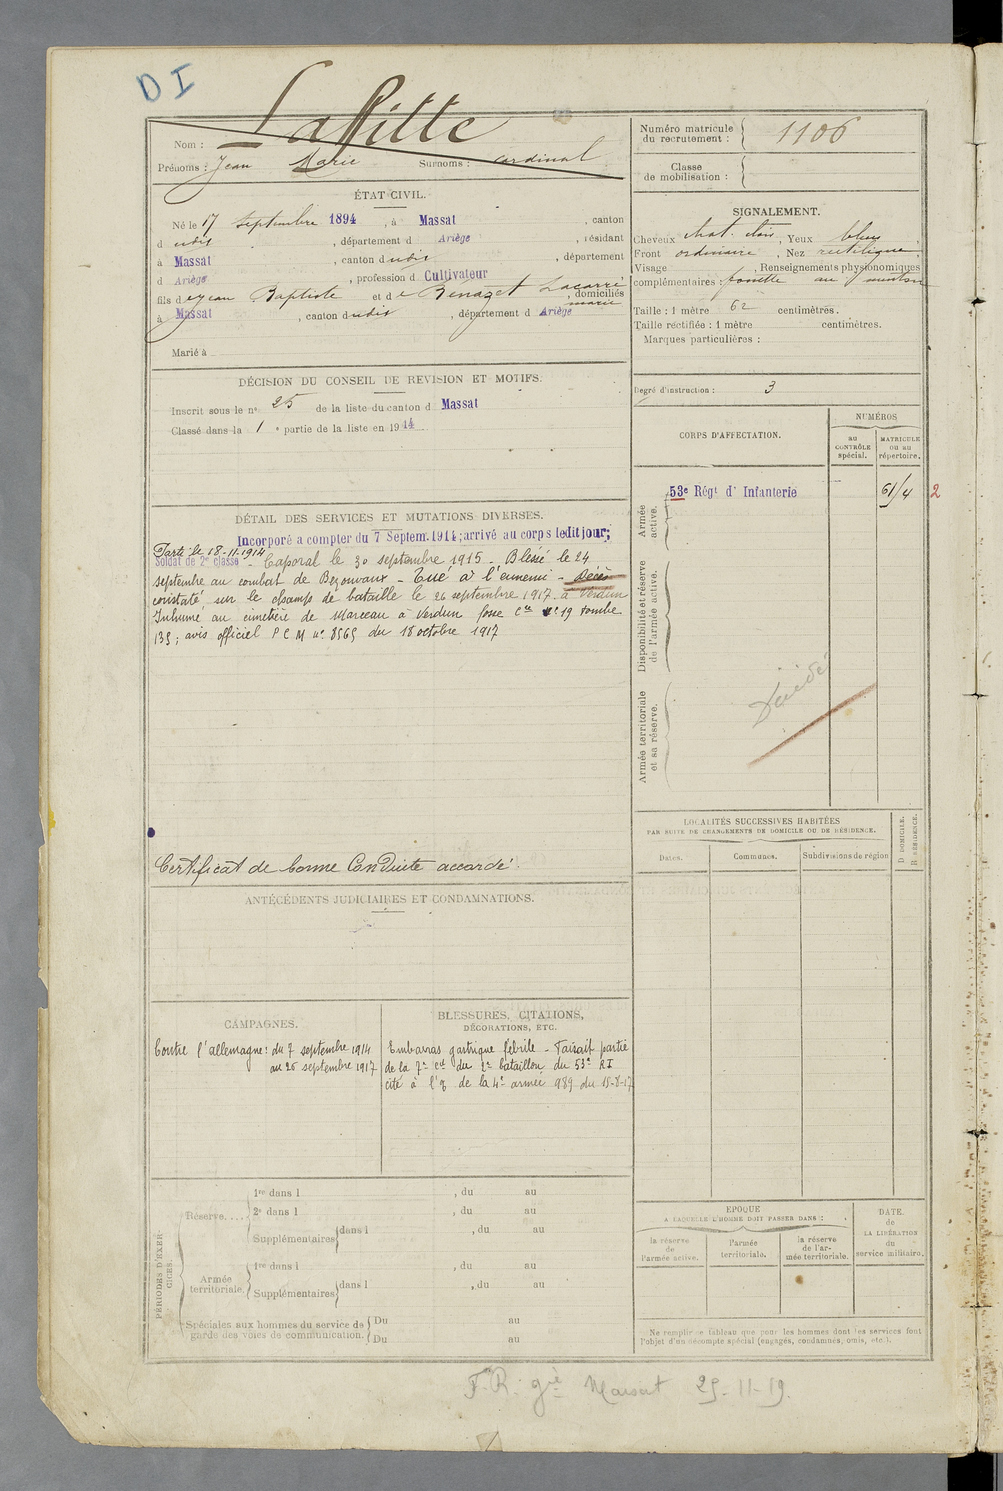 D I
Nom : Laffitte
Prénoms : Jean Marie Surnoms : cardinal
ÉTAT CIVIL.
Né le 17 septembre 1894, à Massat, canton
d udit, département d Ariège, résidant
à Massat, canton dudit, département
d Ariège, profession d Cultivateur
fils de Jean Baptiste et de Benazet Lacarré marie, domiciliés
à Massat, canton dudit, département d Ariège
Marié à
DÉCISION DU CONSEIL DE REVISION ET MOTIFS.
Inscrit sous le nº 25 de la liste du canton d Massat
Classé dans la 1 e partie de la liste en 1914
DÉTAIL DES SERVICES ET MUTATIONS DIVERSES.
Incorporé a compter du 7 Septem. 1914; arrivé au corps ledit jour;
Parti le 18-11-1914
Soldat de 2e classe - Caporal le 30 septembre 1915 - Blessé le 24
septembre au combat de Bezonvaux - Tué à l'ennemi - Décès
constaté sur le champs de bataille le 26 septembre 1917 à Verdun
Inhumé au cimetière de Marceau à Verdun fosse Cte nº 19 tombe
135; avis officiel P C M nº 8565 du 18 octobre 1917
Certificat de bonne Conduite accordé.
ANTÉCÉDENTS JUDICIAIRES ET CONDAMNATIONS.
CAMPAGNES.
Contre l'allemagne: du 7 septembre 1914
au 26 septembre 1917
BLESSURES, CITATIONS,
DÉCORATIONS, ETC.
Embarras gastrique fébrile - Faisait partie
de la 7e Cie du 2e bataillon du 53e RI
cité à l'o de la 4e armée 989 du 15-8-17
PÉRIODES D'EXERCICES.
Réserve....
1re dans l , du au
2e dans l , du au
Supplémentaires dans l , du au
Armée territoriale.
1re dans l , du au
Supplémentaires dans l , du au
Spéciales aux hommes du service de garde des voies de communication.
Du au
Du au
Numéro matricule du recrutement : 1106
Classe de mobilisation :
SIGNALEMENT.
Cheveux chat. clair, Yeux bleus
Front ordinaire, Nez rectiligne
Visage , Renseignements physionomiques
complémentaires : fossette au menton
Taille : 1 mètre 62 centimètres.
Taille rectifiée : 1 mètre centimètres.
Marques particulières :
Degré d'instruction : 3
CORPS D'AFFECTATION.
NUMÉROS
au CONTRÔLE spécial.
MATRICULE ou au répertoire.
Armée active.
53e Régt d' Infanterie
61/4 2
Disponibilité et réserve de l'armée active.
Armée territoriale et sa réserve.
Décédé
LOCALITÉS SUCCESSIVES HABITÉES
PAR SUITE DE CHANGEMENTS DE DOMICILE OU DE RÉSIDENCE.
Dates.
Communes.
Subdivisions de région
D DOMICILE.
R RÉSIDENCE.
EPOQUE
A LAQUELLE L'HOMME DOIT PASSER DANS :
la réserve de l'armée active.
l'armée territoriale.
la réserve de l'armée territoriale.
DATE. de LA LIBÉRATION du service militaire.
Ne remplir ce tableau que pour les hommes dont les services font
l'objet d'un décompte spécial (engagés, condamnés, omis, etc.).
F.R. gie Massat 25-11-19.